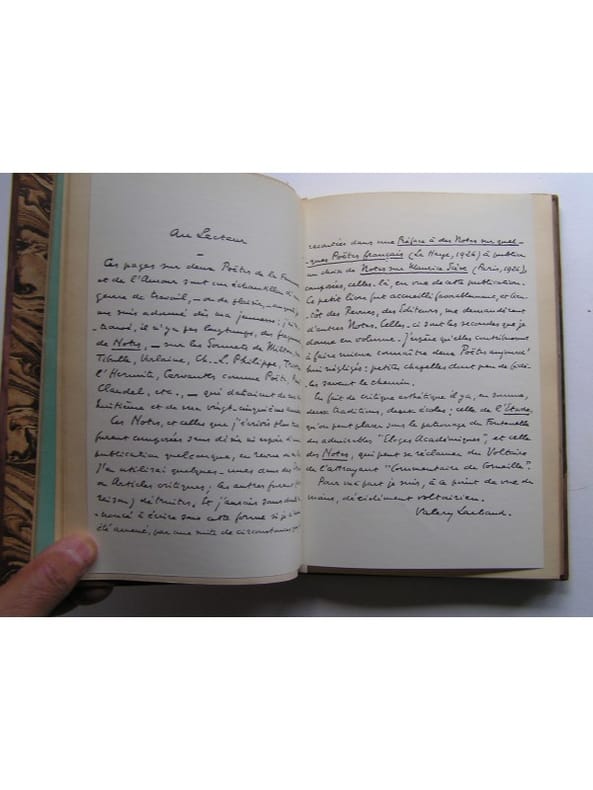 Au Lecteur
Ces pages sur deux Poëtes de la
et de l'Amour sont un échantillon d'un
genre de travail, — ou de plaisir, — auquel je
me suis adonné dès ma jeunesse; j'ai
il n'y a pas longtemps, des
de Notes, — sur les Sonnets de Milton,
Tibulle, Verlaine, Ch.-L. Philippe,
l'Hermite, Cervantes comme Poëte,
Claudel, etc., — qui dataient de ma
huitième et de ma vingt-cinquième année
Ces Notes, et celles que j'écrivis plus
furent composées sans désir ni espoir d'une
publication quelconque, en revue ou
J'en utilisai quelques-unes dans des
ou Articles critiques; les autres furent
détruites. Et j'aurais sans doute
-noncé à écrire sous cette forme si je n'avais
été amené, par une suite de circonstances
racontées dans une Préface à des Notes sur quel-
-ques Poëtes français (La Haye, 1926) à publier
un choix de Notes sur Maurice Scève (Paris, 1926),
composées, celles-là, en vue de cette publication.
Ce petit livre fut accueilli favorablement, et aus-
sitôt des Revues, des Editeurs, me demandèrent
d'autres Notes. Celles-ci sont les secondes que je
donne en volume. J'espère qu'elles contribueront
à faire mieux connaître deux Poëtes aujourd'
hui négligés: petites chapelles dont peu de fidè-
les savent le chemin.
En fait de critique esthétique il y a, en somme,
deux traditions, deux écoles: celle de l'Etude,
qu'on peut placer sous le patronage du Fontenelle
des admirables "Eloges Académiques", et celle
des Notes, qui peut se réclamer du Voltaire
de l'attrayant "Commentaire de Corneille".
Pour ma part je suis, à ce point de vue du
moins, décidément voltairien.
Valery Larbaud.